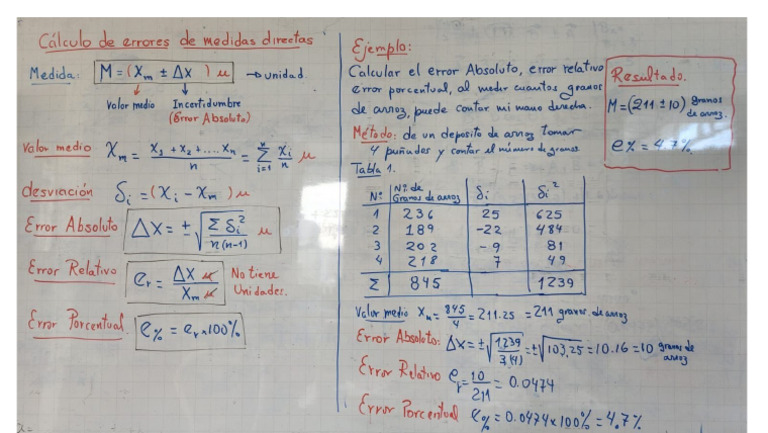 Cálculo de errores de medidas directas
Medida: M = (Xm ± ΔX) u → unidad
Valor medio Incertidumbre
(Error Absoluto)
Valor medio Xm = (x1 + x2 + .... xn)/n = Σ(i=1, n) xi/n u
desviación δi = (xi - xm) u
Error Absoluto ΔX = ± √(Σ δi² / n(n-1)) u
Error Relativo er = ΔX u / Xm u No tiene
Unidades.
Error Porcentual e% = er × 100%
Ejemplo:
Calcular el error Absoluto, error relativo
error porcentual, al medir cuantos granos
de arroz, puede contar mi mano derecha.
Método: de un deposito de arroz tomar
4 puñudes y contar el número de granos
Tabla 1.
Nº Nº de Granos de arroz δi δi²
1 236 25 625
2 189 -22 484
3 202 -9 81
4 218 7 49
Σ 845 1239
Valor medio Xm = 845/4 = 211.25 = 211 granos de arroz
Error Absoluto: ΔX = ± √(1239/3(4)) = ± √103,25 = 10.16 = 10 granos de arroz
Error Relativo er = 10/211 = 0.0474
Error Porcentual e% = 0.0474 × 100% = 4.7%
Resultado.
M = (211 ± 10) granos
de arroz.
e% = 4.7%.